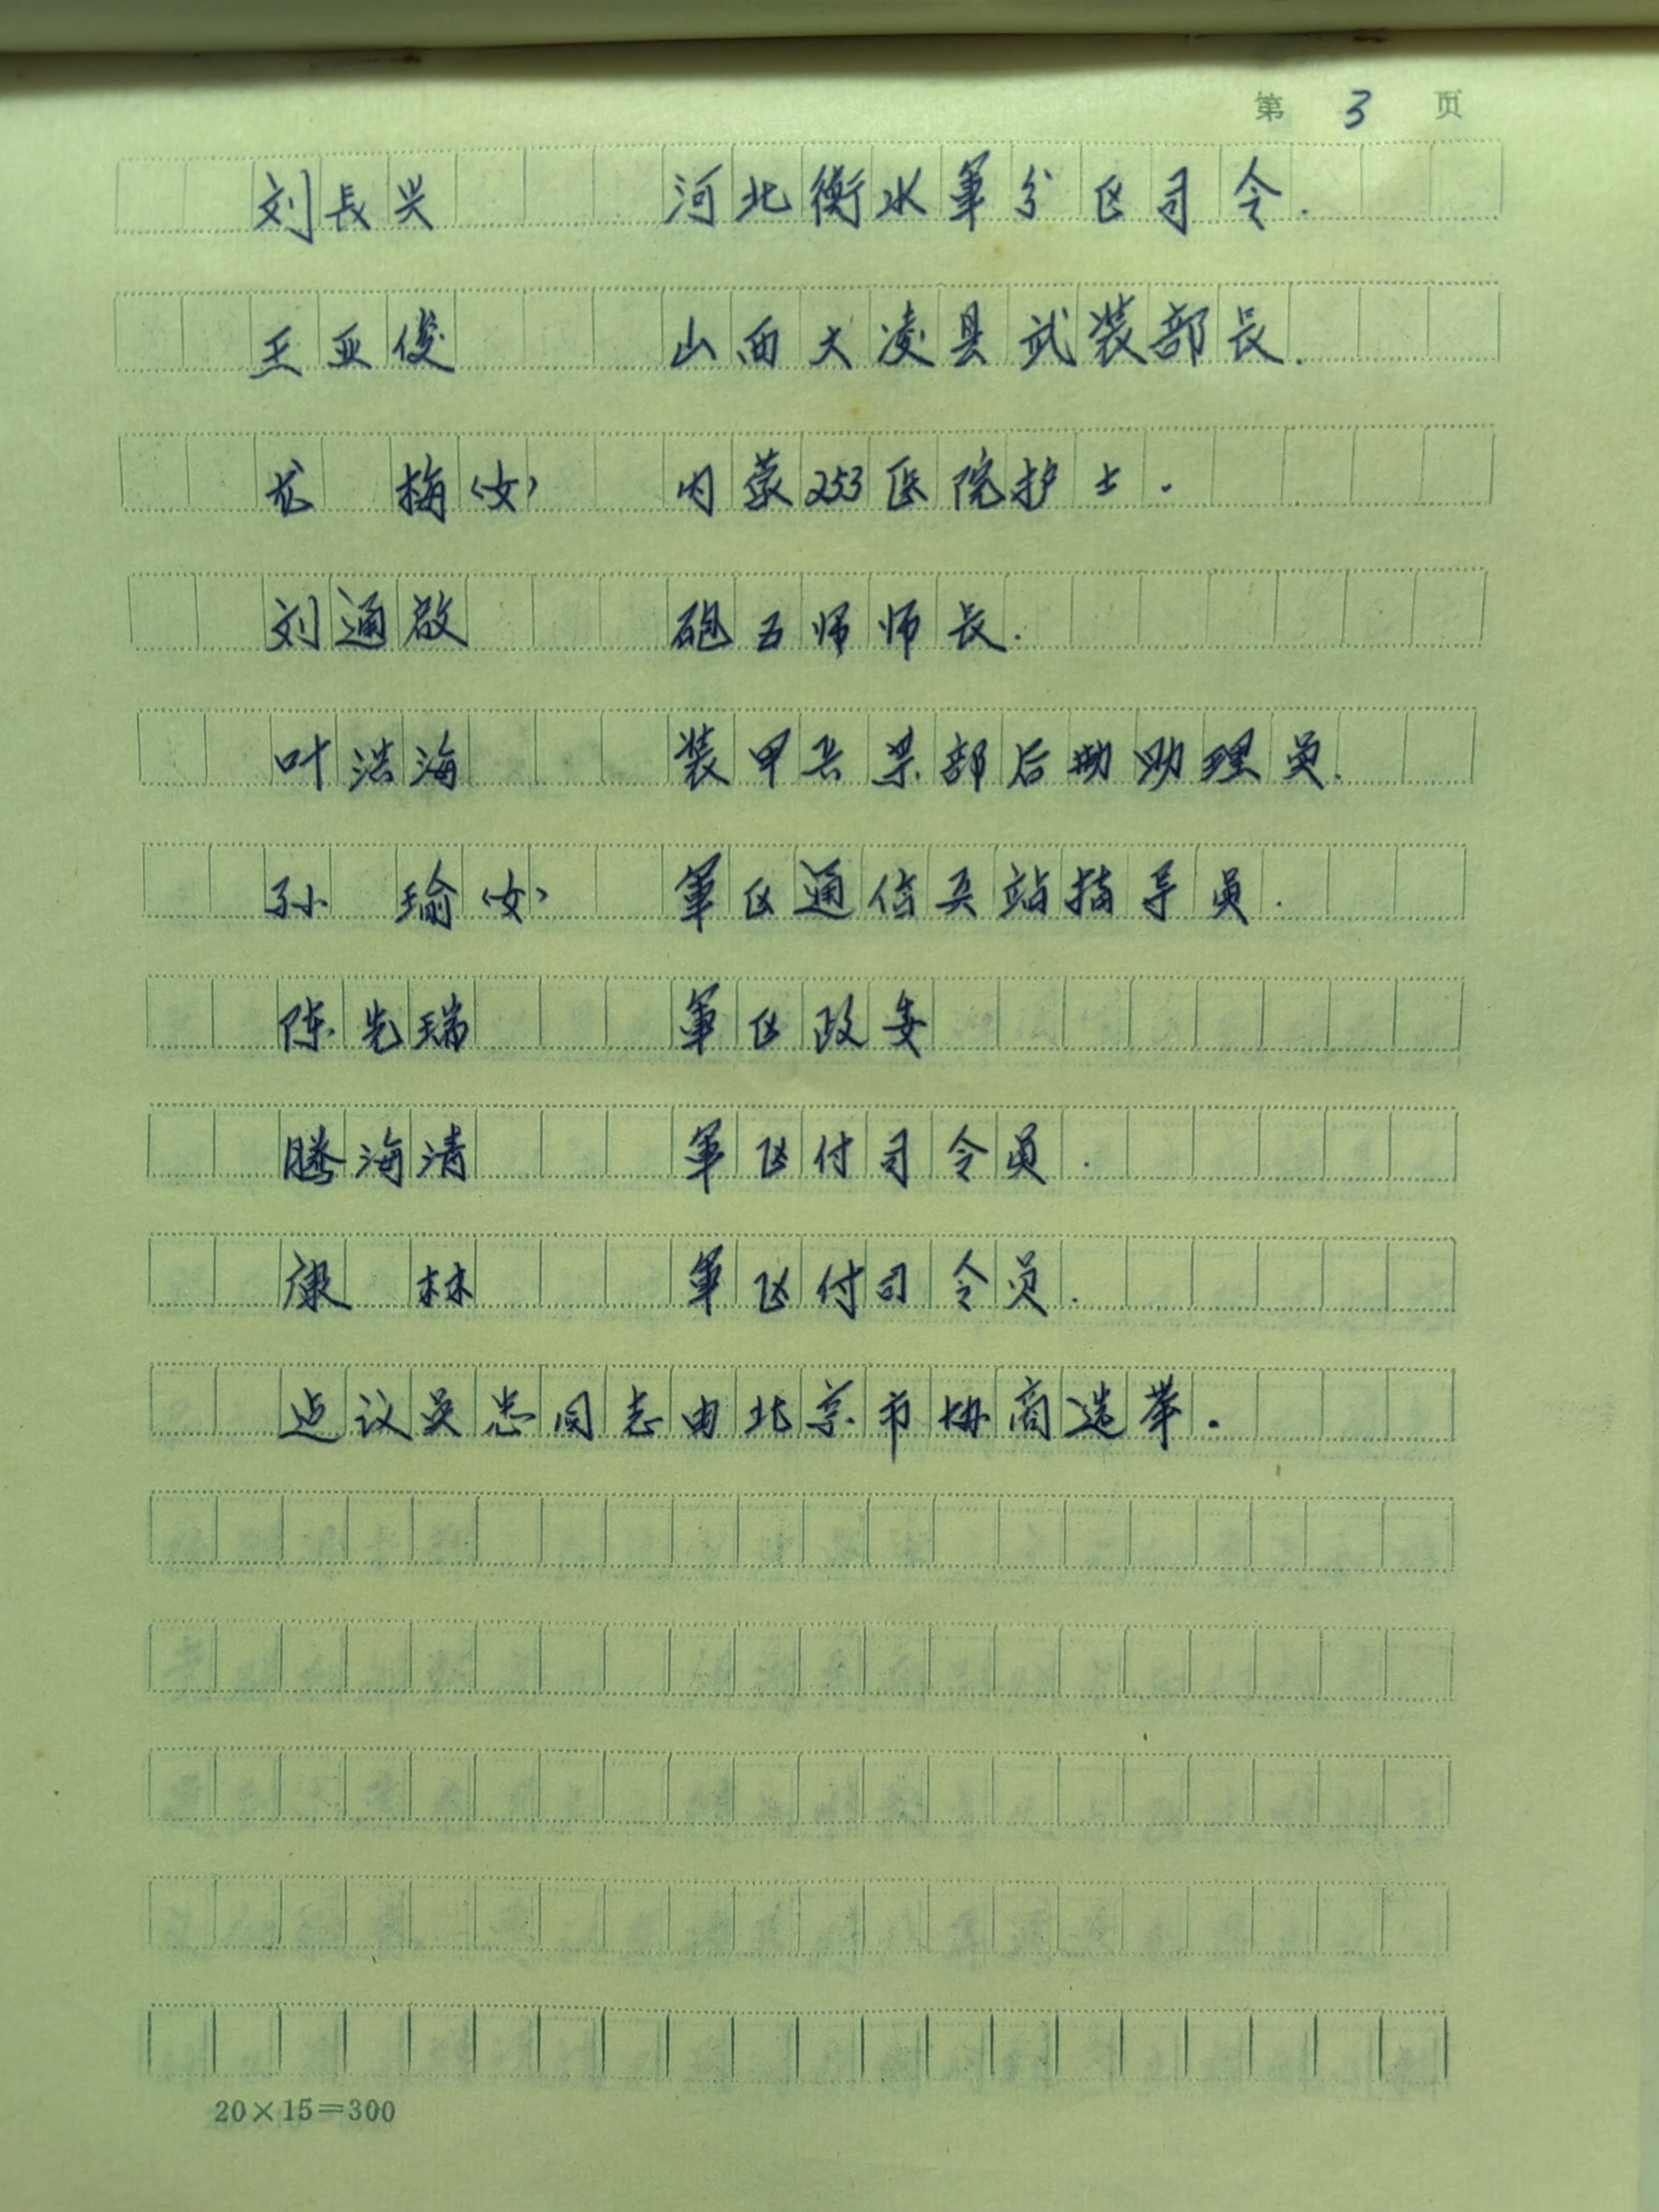 第 3 页
刘長兴 河北衡水軍分区司令.
王亚俊 山西大凌县武装部长.
龙 梅(女) 内蒙253医院护士.
刘通啟 砲五师师长.
叶浩海 装甲兵某部后勤助理员.
孙 瑜(女) 軍区通信兵站指导员.
陈先瑞 軍区政委
滕海清 軍区付司令员.
康 林 軍区付司令员.
建议吴忠同志由北京市协商选举.
20×15=300